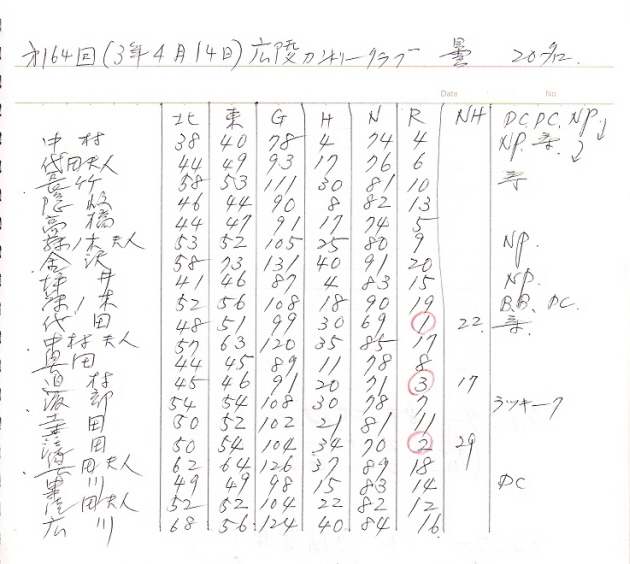 第164回(3年4月14日)広陵カントリークラブ 曇 20-9/12.
Date No.
北 東 G H N R NH DC, PC, NP.
中村 38 40 78 4 74 4 NP.
代田夫人 44 49 93 17 76 6
長竹 58 53 111 30 81 10
46 44 90 8 82 13
高橋 44 47 91 17 74 5
夫人 53 52 105 25 80 9 NP.
金沢 58 73 131 40 91 20
井 41 46 87 4 83 15 NP.
木 52 56 108 18 90 19 BB, DC.
代田 48 51 99 30 69 1 22.
中村夫人 57 63 120 35 85 17
田 44 45 89 11 78 8
村 45 46 91 20 71 3 17
部 54 54 108 30 78 7 ラッキー7
田 50 52 102 21 81 11
田 50 54 104 34 70 2 29
田夫人 62 64 126 37 89 18
川 49 49 98 15 83 14 DC
田夫人 52 52 104 22 82 12
広川 68 56 124 40 84 16